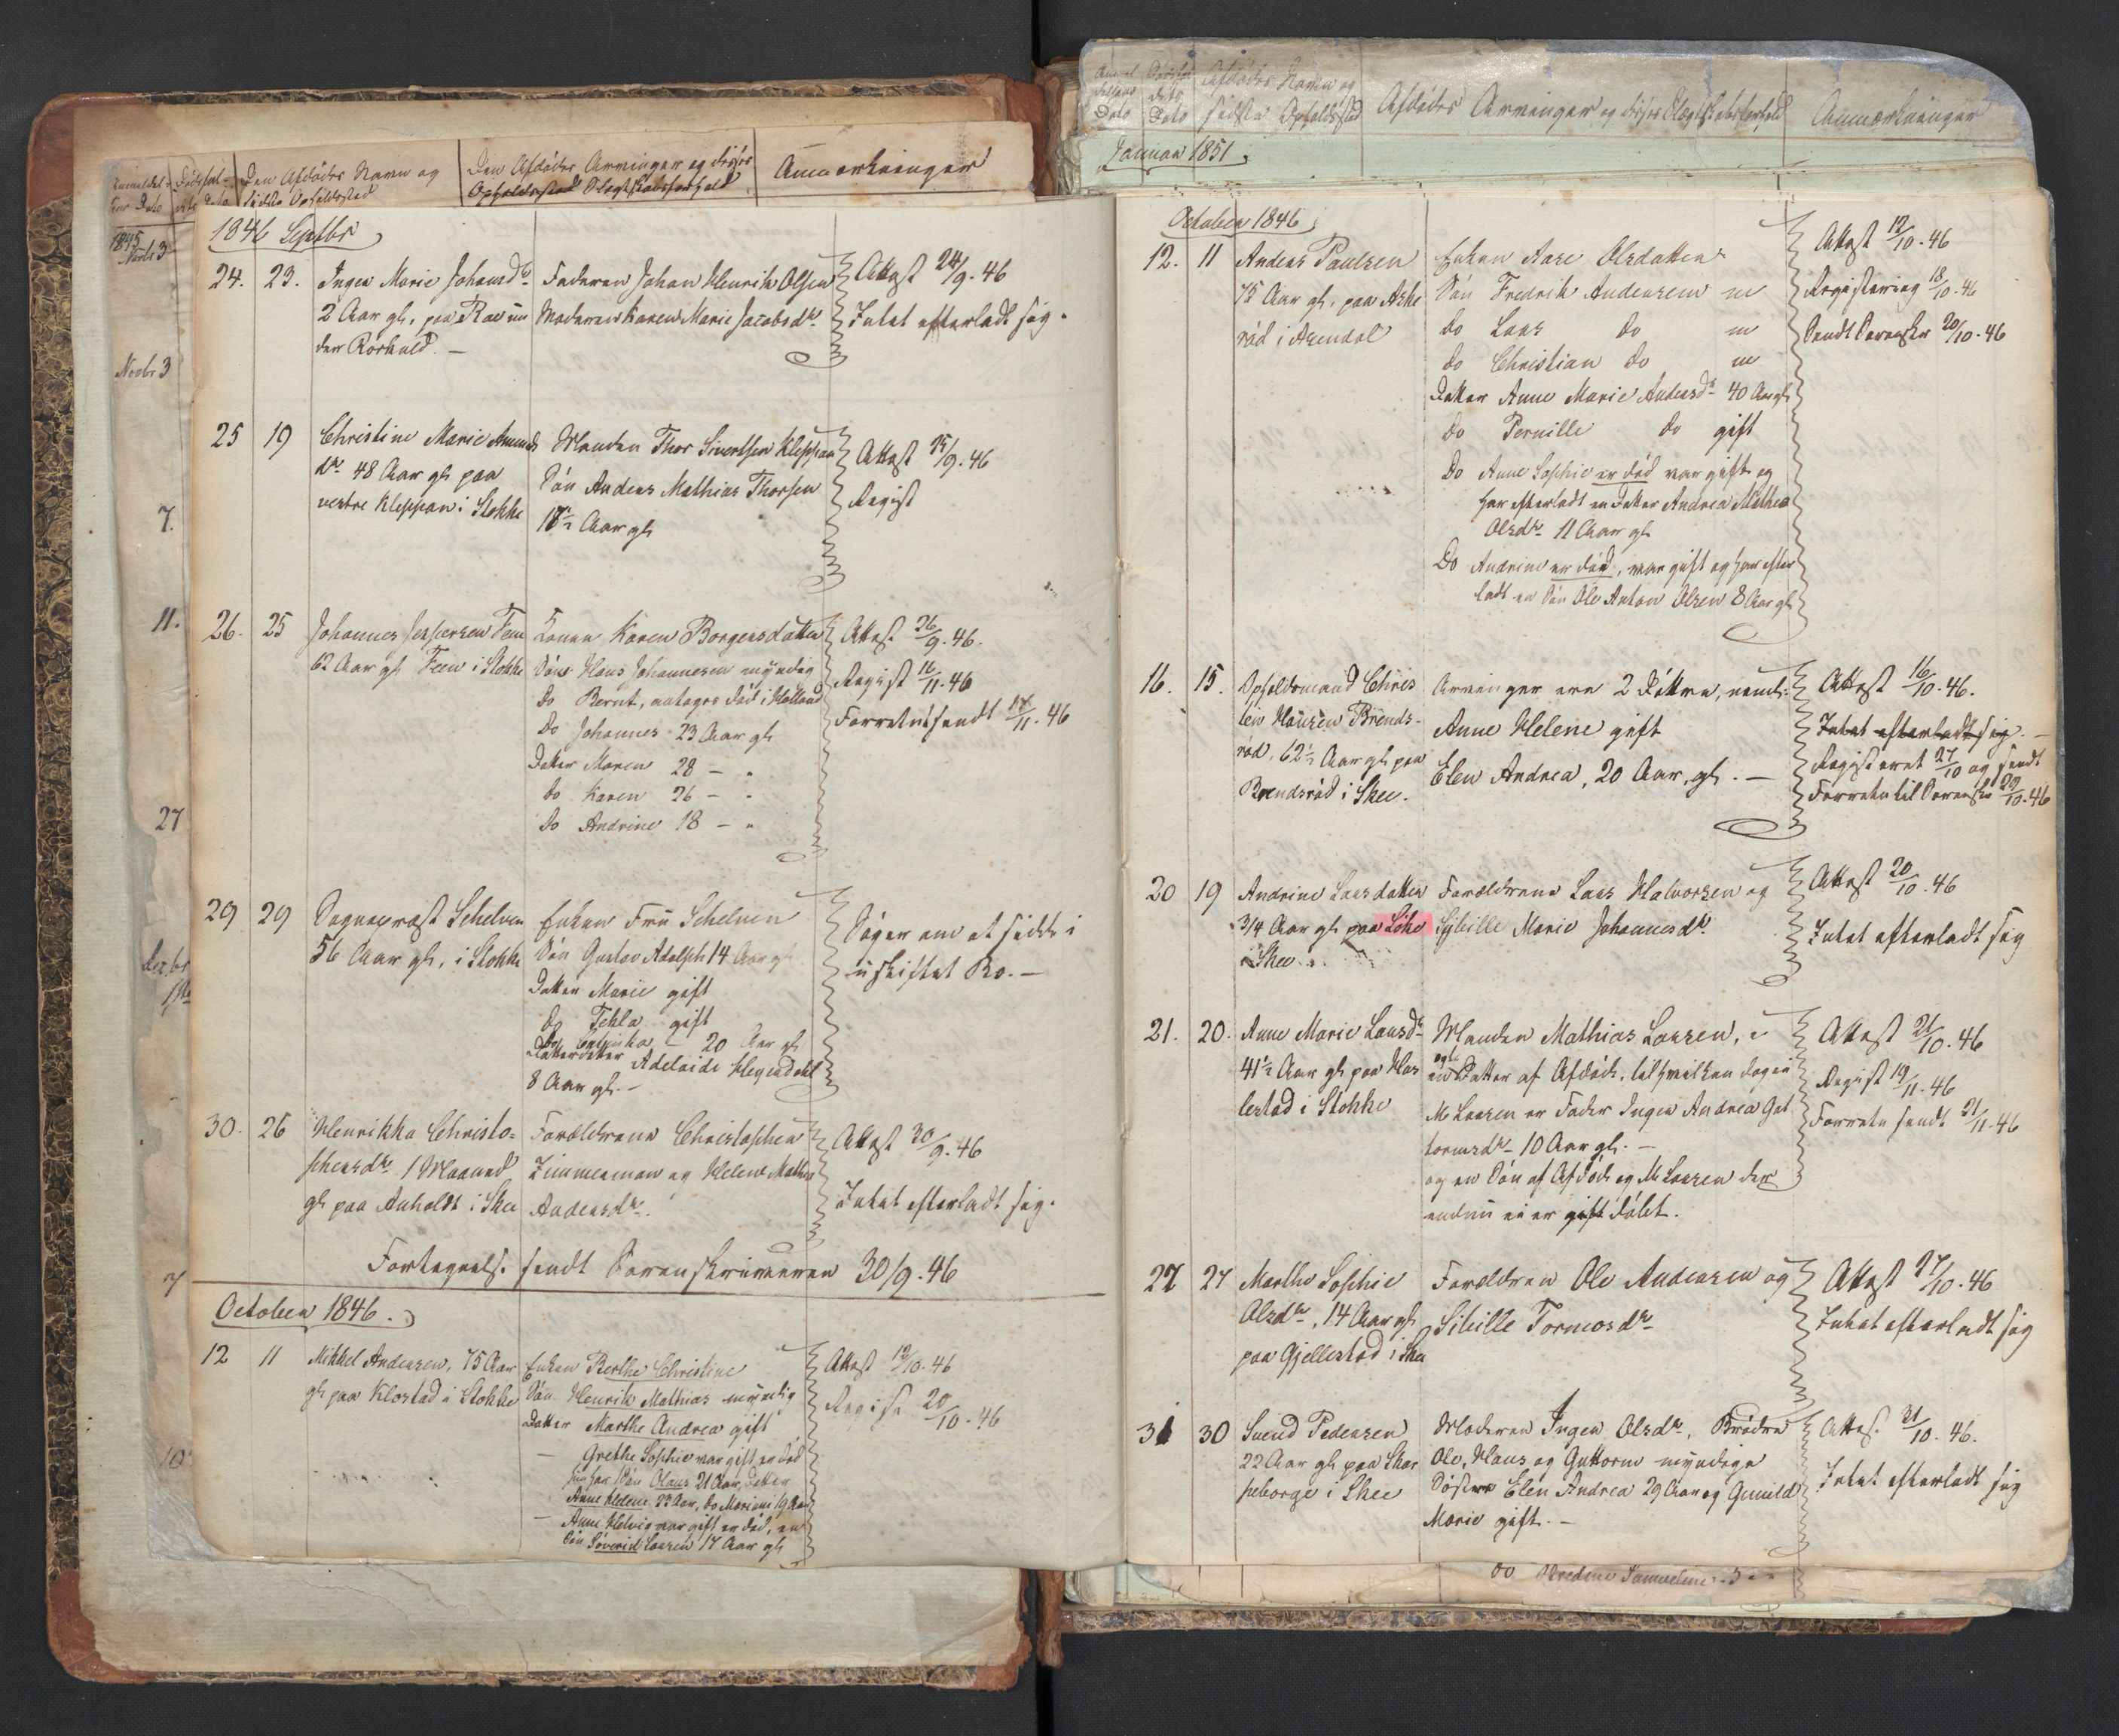 Den Afdødes Navn og
sidste Opholdssted
Den Afdødes Arvinger og disses
Opholdssted Slægtskabsforhold
Anmærkninger
1845
Novbr 3
Novbr 3
7.
11.
27
7
10
1846 Septbr
24. 23. Inger Marie Johansdr Faderen Johan Henrik Olsen Attest 24/9. 46
2 Aar gl. paa Rae un Moderen Karen Marie Jacobsdr. Intet efterladt sig.
der Rørkold. —
25 19 Christine Marie Amunds Manden Thor Sivertsen Kleppan Attest 25/9. 46
dr. 48 Aar gl paa Søn Anders Mathias Thorsen Regist
vestre Kleppan i Stokke 18½ Aar gl
26. 25 Johannes Jespersen Feen Konen Karen Borgersdatter Attest. 26/9. 46.
62 Aar gl Feen i Stokke Søn Hans Johannesen myndig Regist 16/11. 46
Do Bernt, antages død i Holland Forretn: sendt 17/11. 46
Do Johannes 23 Aar gl
Datter Maren 28 — "
Do Karen 26 — "
Do Andrine 18 — "
29 29 Sognepræst Schelven Enken Frü Schelven Søger om at sidde i
56 Aar gl. i Stokke Søn Gustav Adolph 14 Aar gl uskiftet Bo. —
Datter Marie gift
Do Tekla gift
Do Cathinka — 20 Aar gl
Datterdatter Adelaide Heyerdahl
8 Aar gl. —
30. 26 Henrikka Christo= Forældrene Christopher Attest 30/9. 46
phersdr. 1 Maaned Zimmerman og Helene Mathea Intet efterladt sig.
gl paa Anholdt i Skee Andersdr.
Fortegnelse sendt Sorenskriveren 30/9. 46
October 1846.
12 11 Mikkel Andersen, 75 Aar Enken Berthe Christine Attest 12/10. 46
gl paa Klostad i Stokke Søn Henrik Mathias myndig Regist 20/10. 46
Datter Marthe Andrea gift
— Grethe Sophie var gift er død
hun har Søn Olaus 21 Aar, Datter
Anne Helene 23 Aar, Do Mariane 19 Aar
— Anne Helvig var gift er død, en
Søn Severin Larsen 17 Aar gl
Afdødes Navn og
sidste Opholdssted
Afdødes Arvinger og disses Slægtskabsforhold
Anmærkninger
Januar 1851
October 1846
12. 11 Anders Paulsen Enken Aase Olsdatter Attest 12/10. 46
75 Aar gl. paa Aske Søn Fredrik Andersen m Registering 18/10. 46
rød i Arendal Do Lars Do m Sendt Sorenskr 20/10. 46
Do Christian Do m
Datter Anne Marie Andersdr 40 Aar gl
Do Pernille Do gift
Do Anne Sophie er død var gift og
har efterladt en Datter Andrea Mathea
Olsdr. 11 Aar gl
Do Andrine er død, var gift og har efter
ladt en Søn Ole Anton Olsen 8 Aar gl
16. 15. Opholdsmand Chris Arvinger ere 2 Døttre, neml: Attest 16/10. 46.
ten Hansen Brends- Anne Helene gift Intet efterladt sig. —
rød, 62½ Aar gl paa Elen Andrea, 20 Aar, gl. — Registeret 27/10 og sendt
Brendsrød i Skee. Forretn til Sorenskr 29/10. 46
20 19 Andrine Larsdatter Forældrene Lars Halvorsen og Attest 20/10. 46
3/4 Aar gl paa Løke Sybille Marie Johannesdr. Intet efterladt sig
i Skee.
21. 20. Anne Marie Larsdr Manden Mathias Larsen, Attest 21/10. 46
41½ Aar gl paa Har en Datter af Afdøde, til hvilken dog ei Regist 19/11. 46
lestad i Stokke M Larsen er Fader Inger Andrea Gut Forretn sendt 21/11. 46
tormsdr. 10 Aar gl. —
og en Søn af Afdøde og M Larsen der
endnu ei er gift døbt.
27 27 Marthe Sophie Forældren Ole Andersen og Attest 27/10. 46
Olsdr., 14 Aar gl Sibille Tormosdr. Intet efterladt sig
paa Gjellestad i Skee
31 30 Svend Pedersen Moderen Inger Olsdr., Brødre Attest. 31/10. 46.
22 Aar gl paa Skar Ole, Hans og Guttorm myndige Intet efterladt sig
peborge i Skee Søstre Elen Andrea 29 Aar og Gunild
Marie gift. —